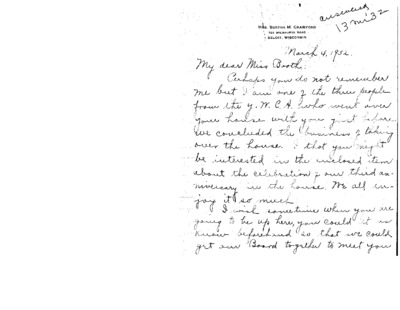 answered
13 mi 32
MRS. BERTHA M. CRAWFORD
BELOIT, WISCONSIN
March 4, 1932.
My dear Miss Booth:
Perhaps you do not remember
me but I am one of the three people
from the Y.W.C.A. who went over
your house with you just before
we concluded the business of taking
over the house. I that you might
be interested in the enclosed item
about the celebration of our third an-
niversary in the house. We all en-
joy it so much.
I wish sometime when you are
going to be up here, you could let us
know beforehand so that we could
get our Board together to meet you